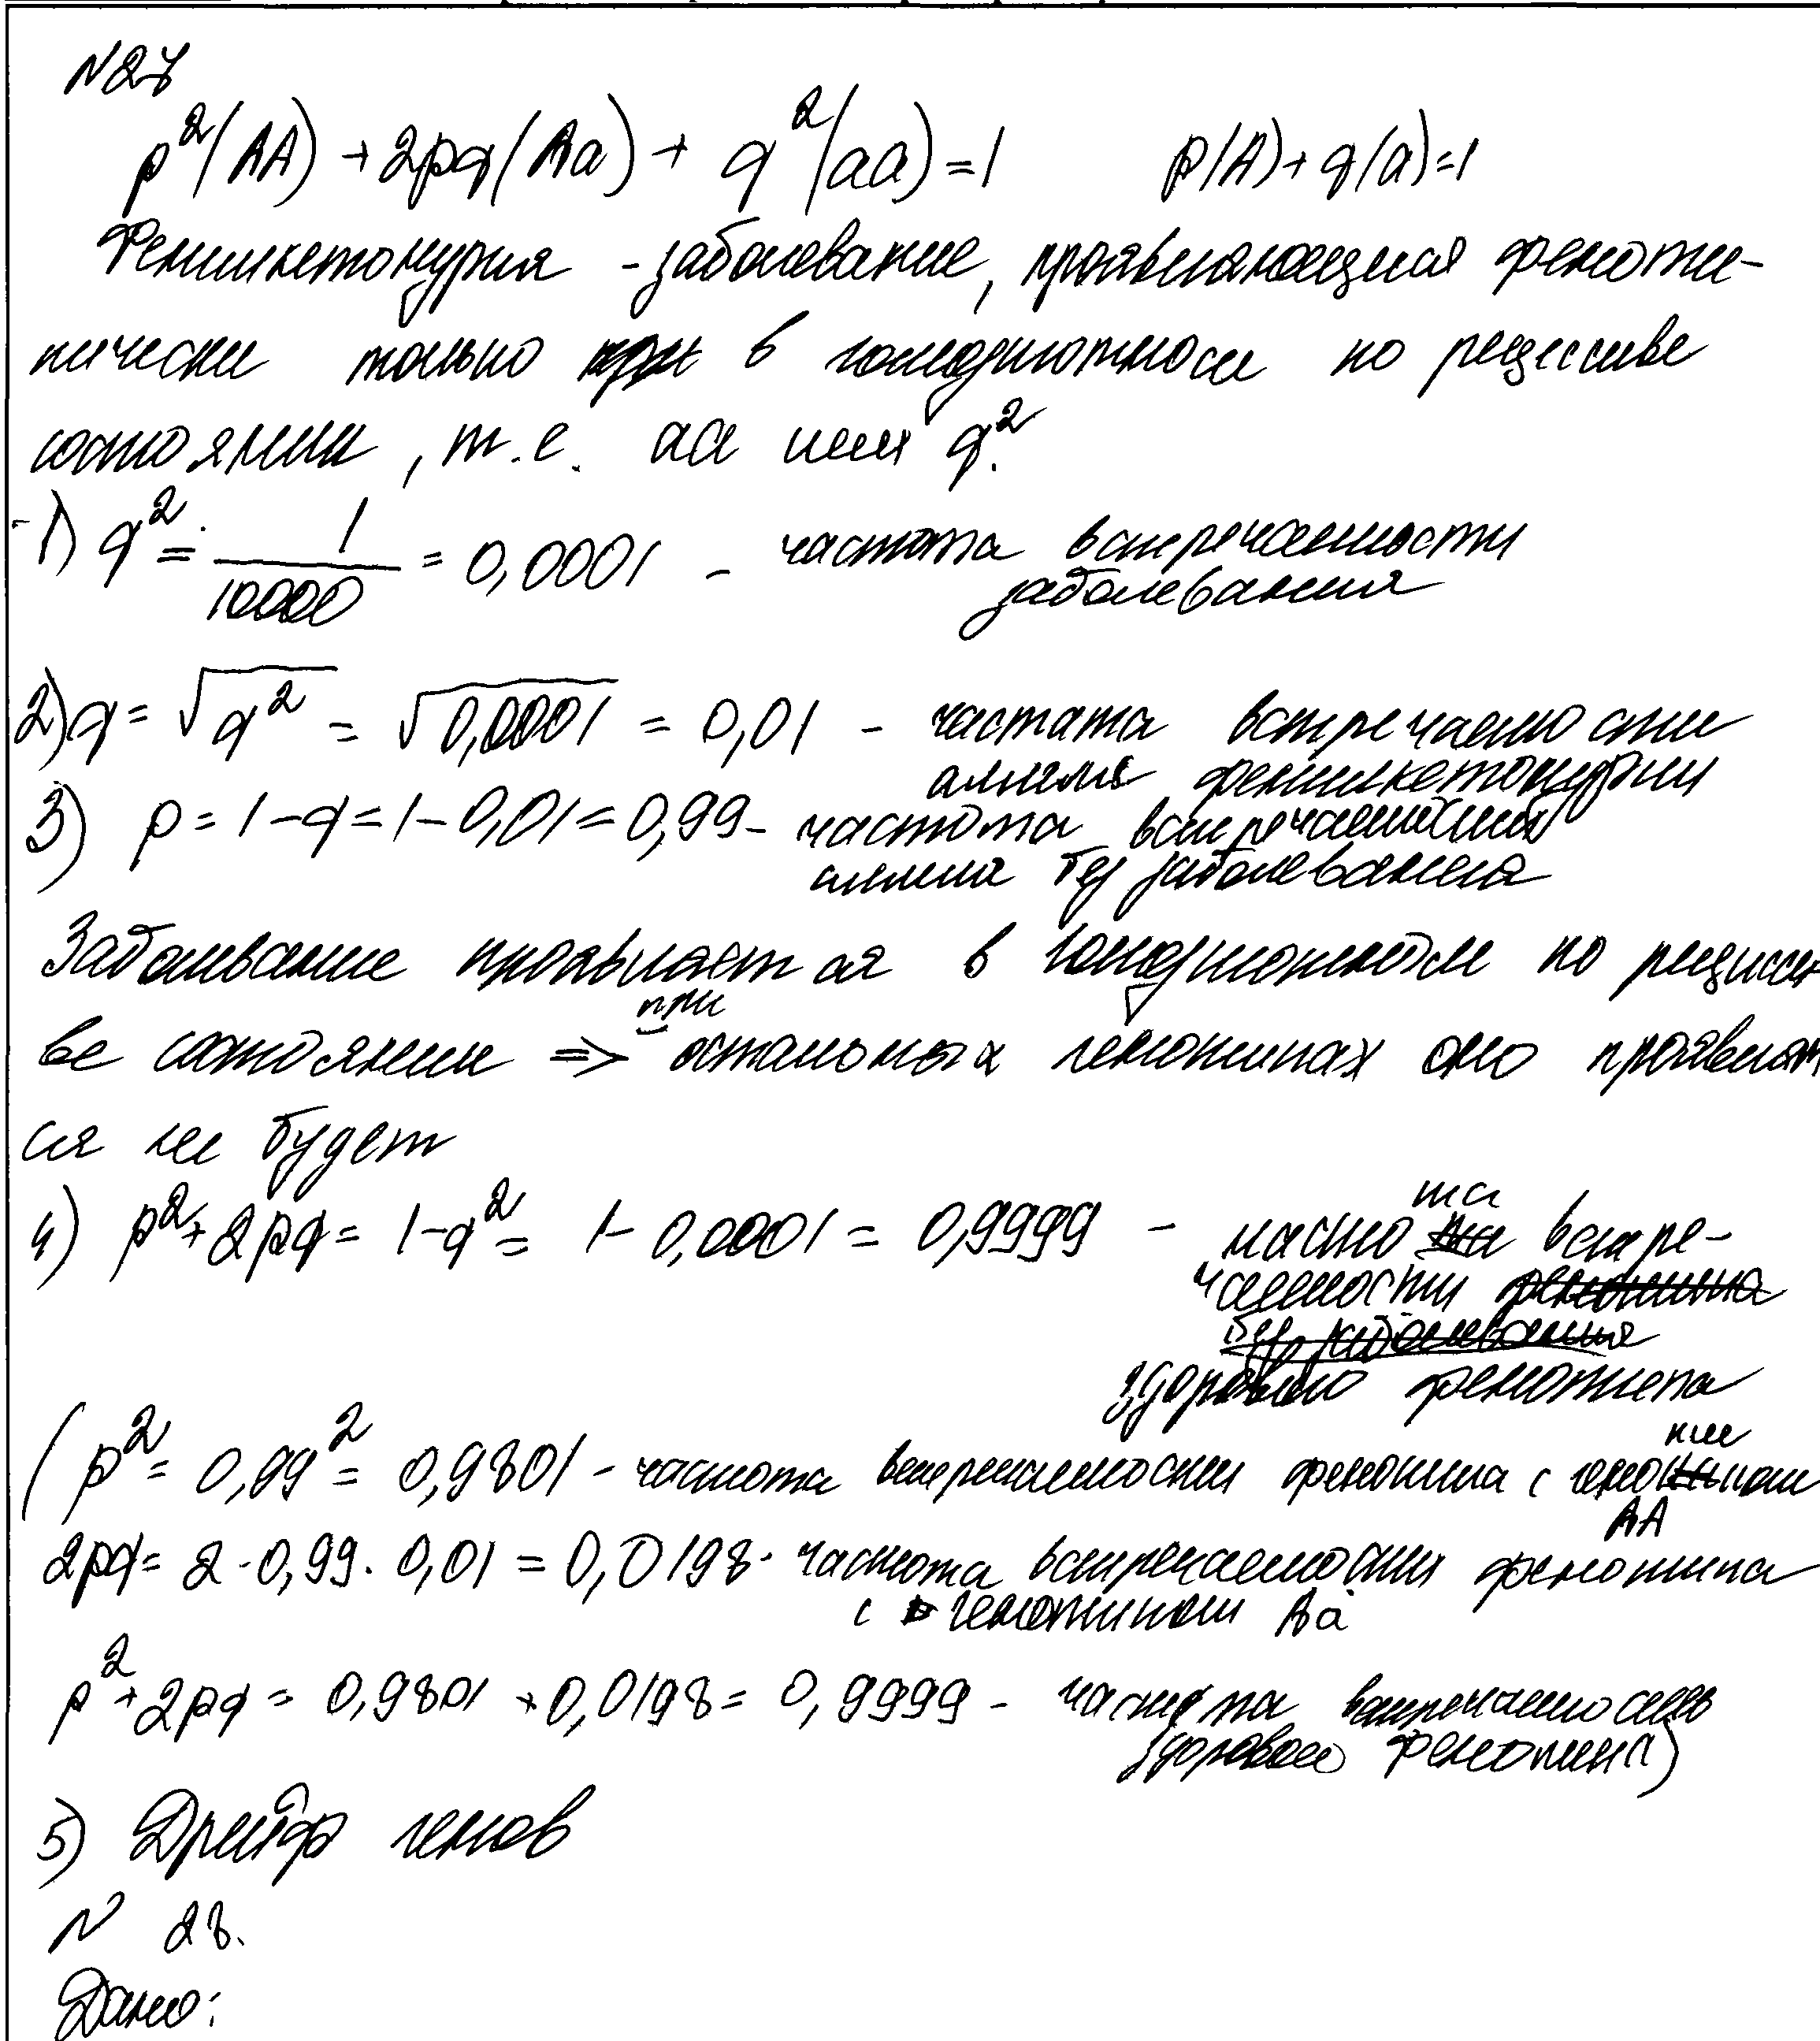 №27
p²(AA) + 2pq(Aa) + q²(aa) = 1 p(A) + q(a) = 1
Фенилкетонурия - заболевание, проявляющееся феноти-
пически только в гомозиготном по рецессиве
состоянии, т.е. aa или q².
1) q² = 1/10000 = 0,0001 - частота встречаемости
заболевания
2) q = √q² = √0,0001 = 0,01 - частата встречаемости
аллеля фенилкетонурии
3) p = 1 - q = 1 - 0,01 = 0,99 - частота встречаемости
аллеля без заболевания
Заболевание проявляется в гомозиготном по рецесси
ве состоянии => при остальных генотипах оно проявлят
ся не будет
4) p² + 2pq = 1 - q² = 1 - 0,0001 = 0,9999 - частота встре-
чаемости
здорового фенотипа
(p² = 0,99² = 0,9801 - частота встречаемости фенотипа с генотипом
AA
2pq = 2 · 0,99 · 0,01 = 0,0198 - частота встречаемости фенотипа
с генотипом Aa
p² + 2pq = 0,9801 + 0,0198 = 0,9999 - частота встречаемость
здорового фенотипа)
5) Дрейф генов
№ 28.
Дано: